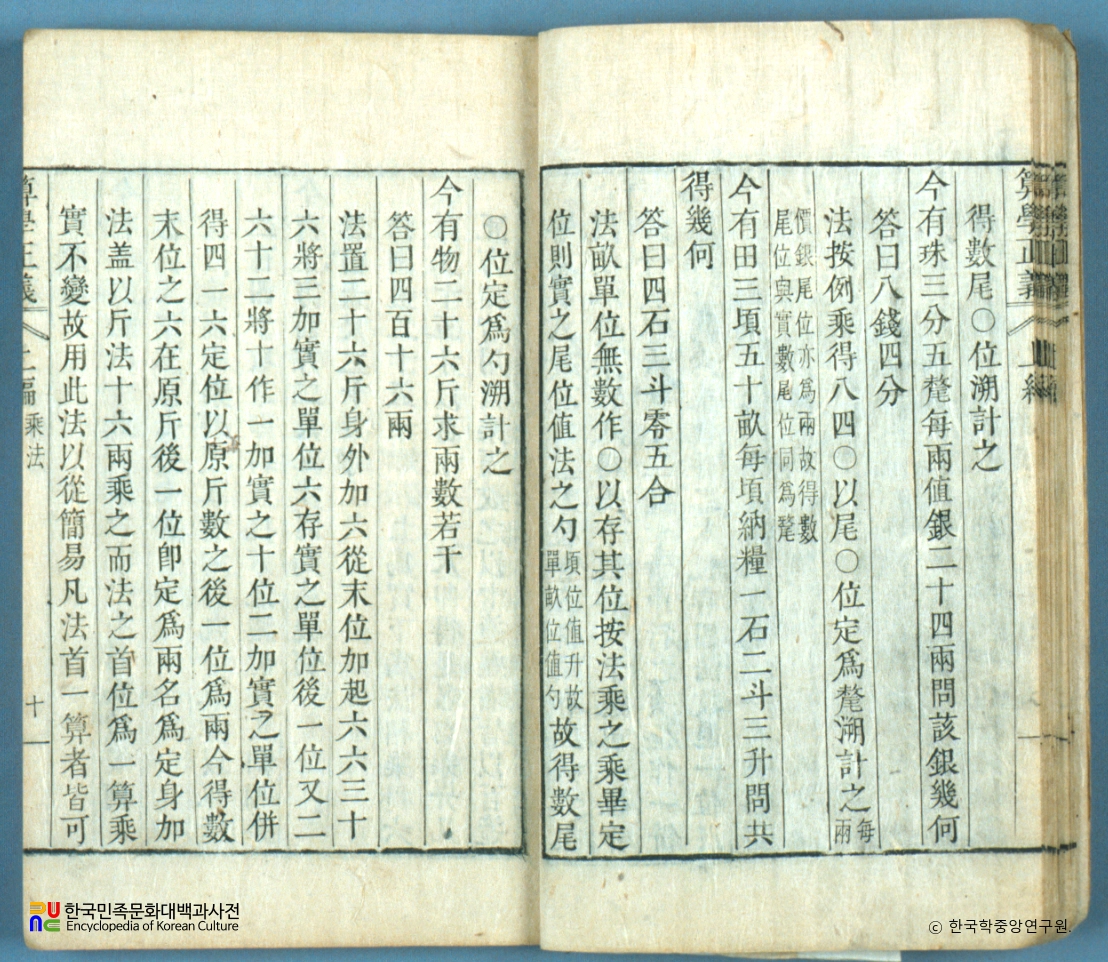 算學正義 上編
得數尾〇位溯計之
今有珠三分五氂每兩值銀二十四兩問該銀幾何
答曰八錢四分
法按例乘得八四〇以尾〇位定爲氂溯計之每兩
價銀尾位亦爲兩故得數
尾位與實數尾位同爲氂
今有田三頃五十畝每頃納糧一石二斗三升問共
得幾何
答曰四石三斗零五合
法畝單位無數作〇以存其位按法乘之乘畢定
位則實之尾位值法之勺頃位值升故單畝位值勺故得數尾
〇位定爲勺溯計之
今有物二十六斤求兩數若干
答曰四百十六兩
法置二十六斤身外加六從末位加起六六三十
六將三加實之單位六存實之單位後一位又二
六十二將十作一加實之十位二加實之單位併
得四一六定位以原斤數之後一位爲兩今得數
末位之六在原斤後一位卽定爲兩名爲定身加
法盖以斤法十六兩乘之而法之首位爲一算乘
實不變故用此法以從簡易凡法首一算者皆可
算學正義 上編 乘法 十一
한국민족문화대백과사전
Encyclopedia of Korean Culture
© 한국학중앙연구원